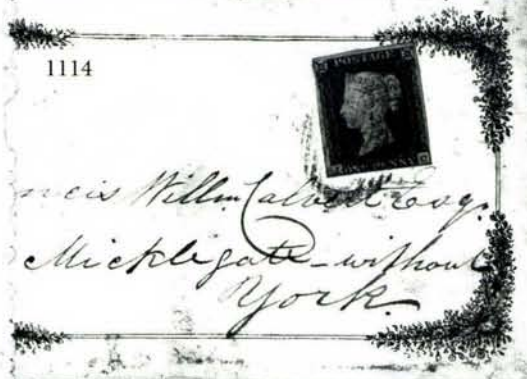 1114
POSTAGE
ONE PENNY
ncis Willm Calvert Esq.
Micklegate - without
York.